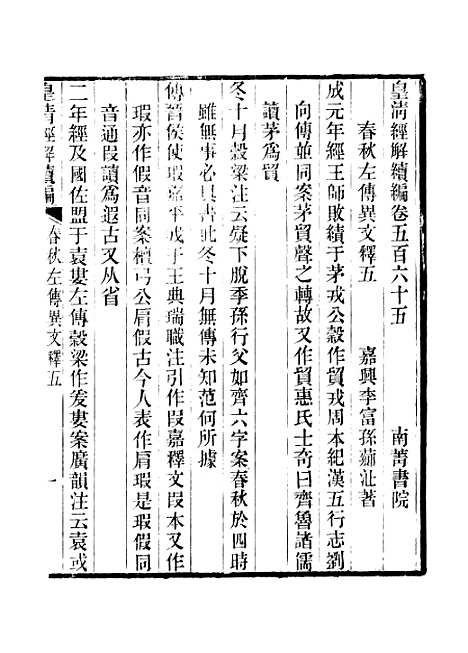 皇淸經解續編卷五百六十五　南菁書院
春秋左傳異文釋五　嘉興李富孫薌沚著
成元年經王師敗績于茅戎公穀作貿戎周本紀漢五行志劉
向傳並同案茅貿聲之轉故又作貿惠氏士奇曰齊魯諸儒
讀茅爲貿
冬十月穀梁注云疑下脫季孫行父如齊六字案春秋於四時
雖無事必具書此冬十月無傳未知范何所據
傳晉侯使瑕嘉平戎于王典瑞職注引作叚嘉釋文叚本又作
瑕亦作假音同案檀弓公肩假古今人表作肩瑕是瑕假同
音通叚讀爲遐古又从省
二年經及國佐盟于袁婁左傳穀梁作爰婁案廣韻注云袁或
皇淸經解續編　春秋左傳異文釋五　一